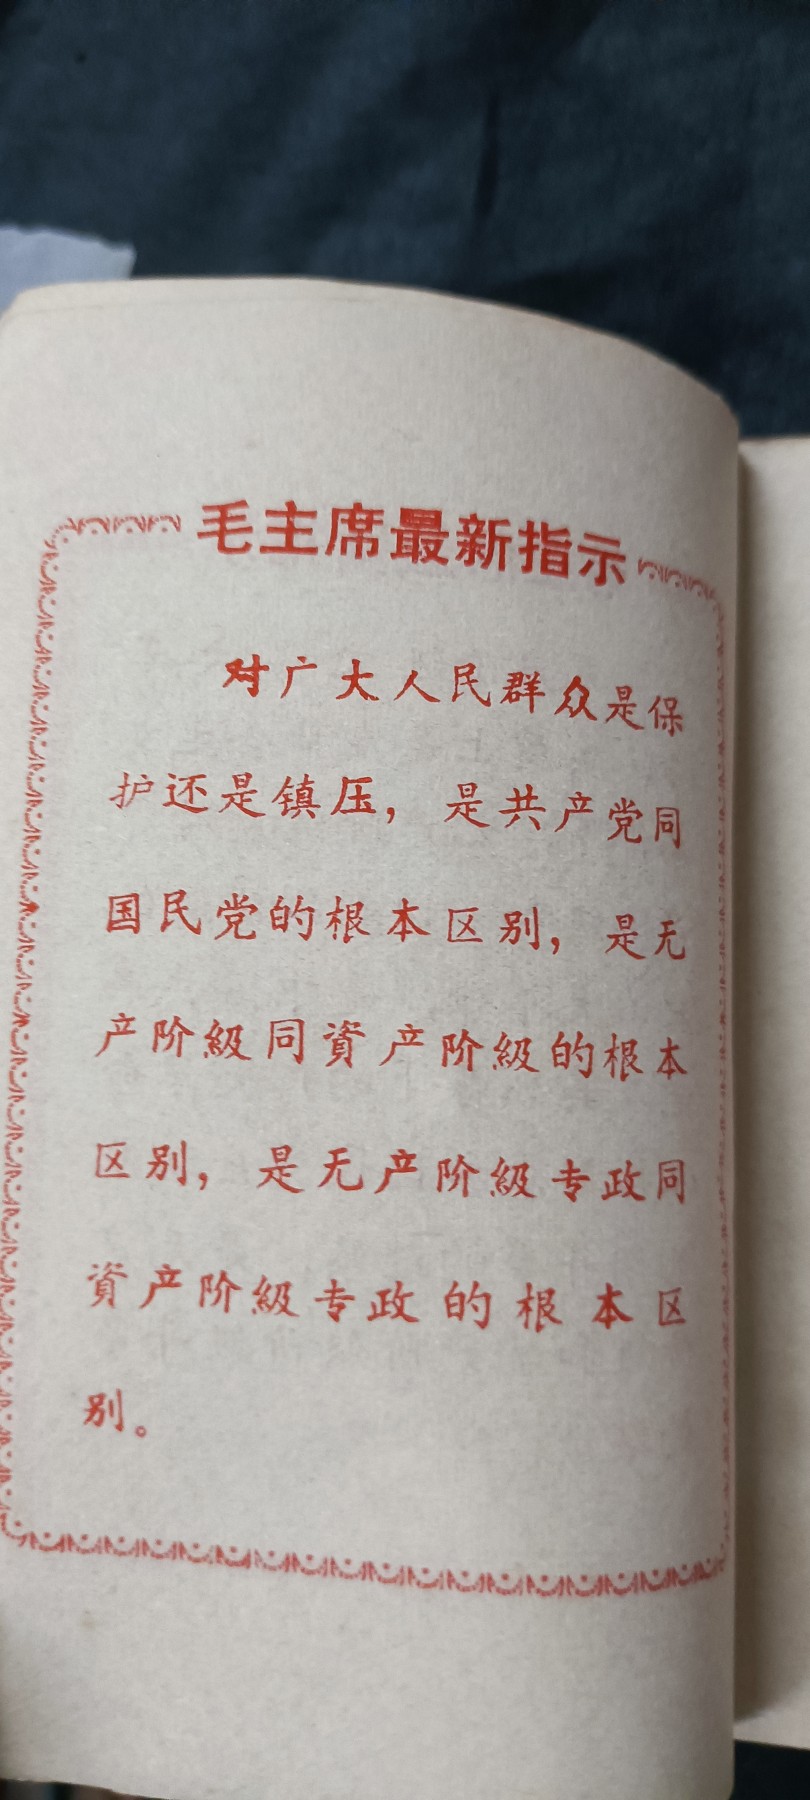 毛主席最新指示
对广大人民群众是保
护还是镇压，是共产党同
国民党的根本区别，是无
产阶級同資产阶級的根本
区别，是无产阶級专政同
資产阶級专政的根本区
别。